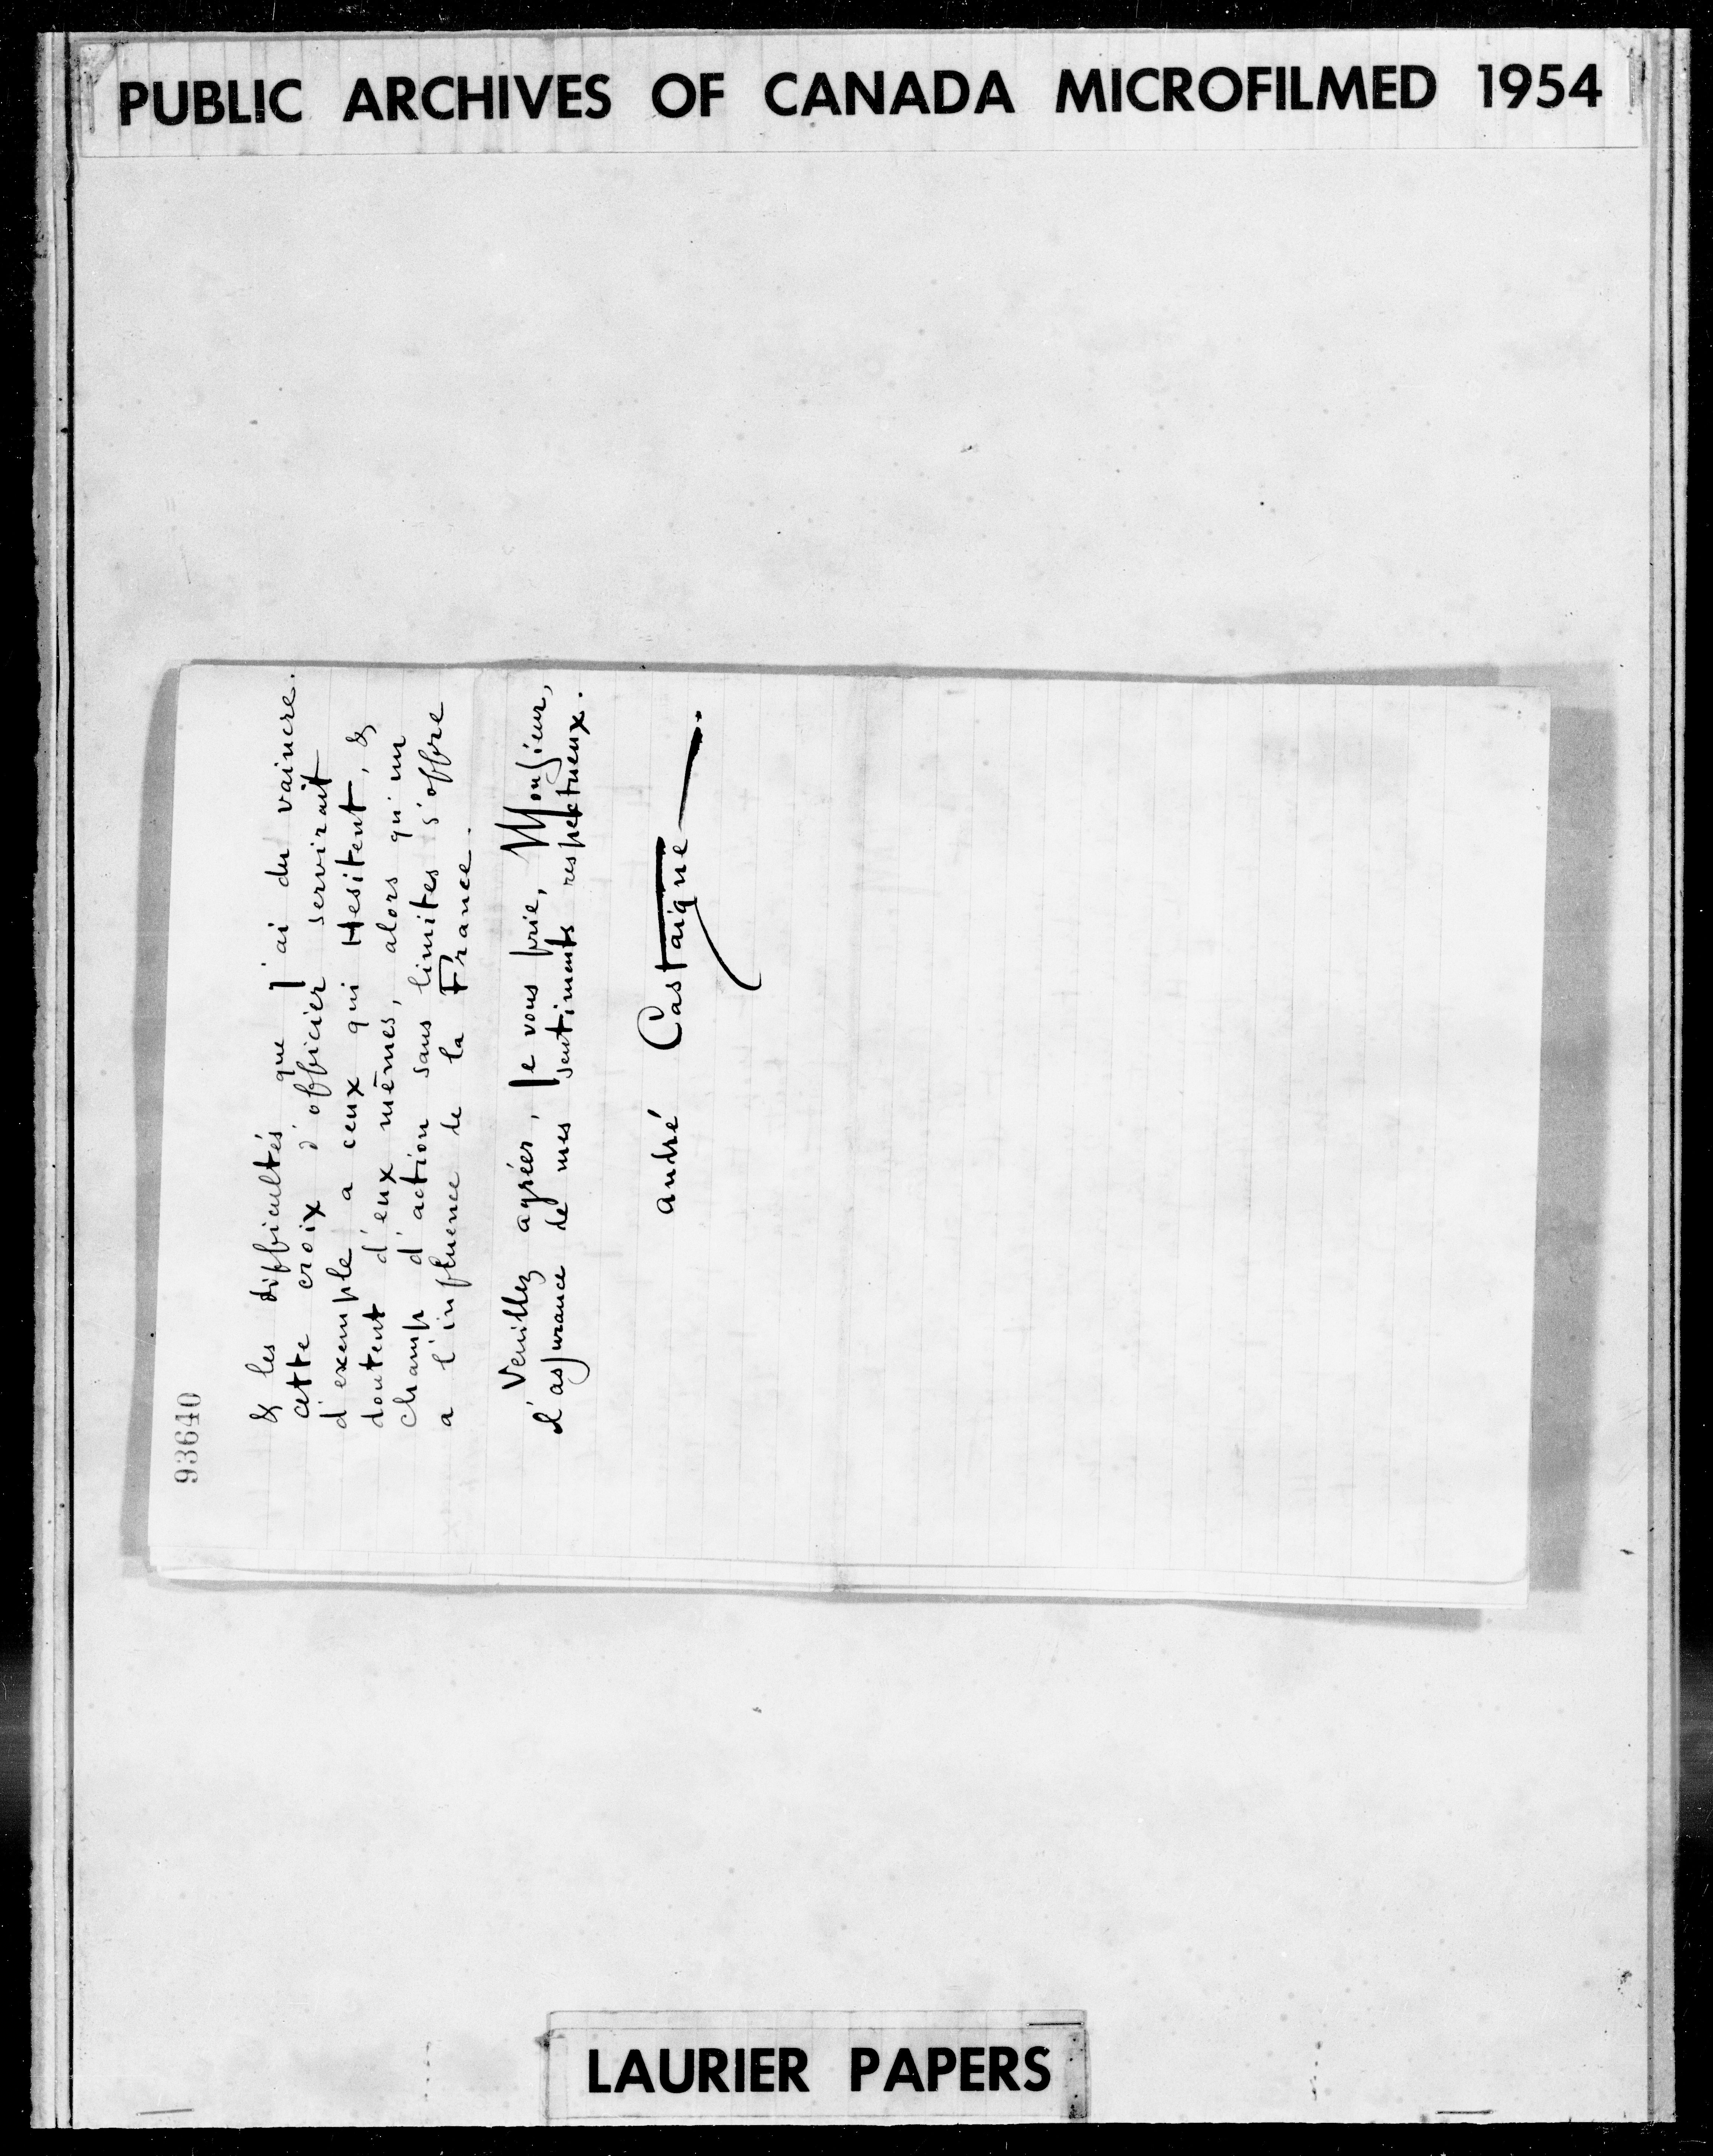 PUBLIC ARCHIVES OF CANADA MICROFILMED 1954
93640
& les difficultés que j'ai du vaincre.
cette croix d'officier servirait
d'exemple a ceux qui Hesitent, &
doutent d'eux mêmes, alors qu'un
champ d'action sans limites s'offre
a l'influence de la France.
Veuillez agréer, je vous prie, Monsieur,
l'assurance de mes sentiments respectueux.
andré Castaigne
LAURIER PAPERS